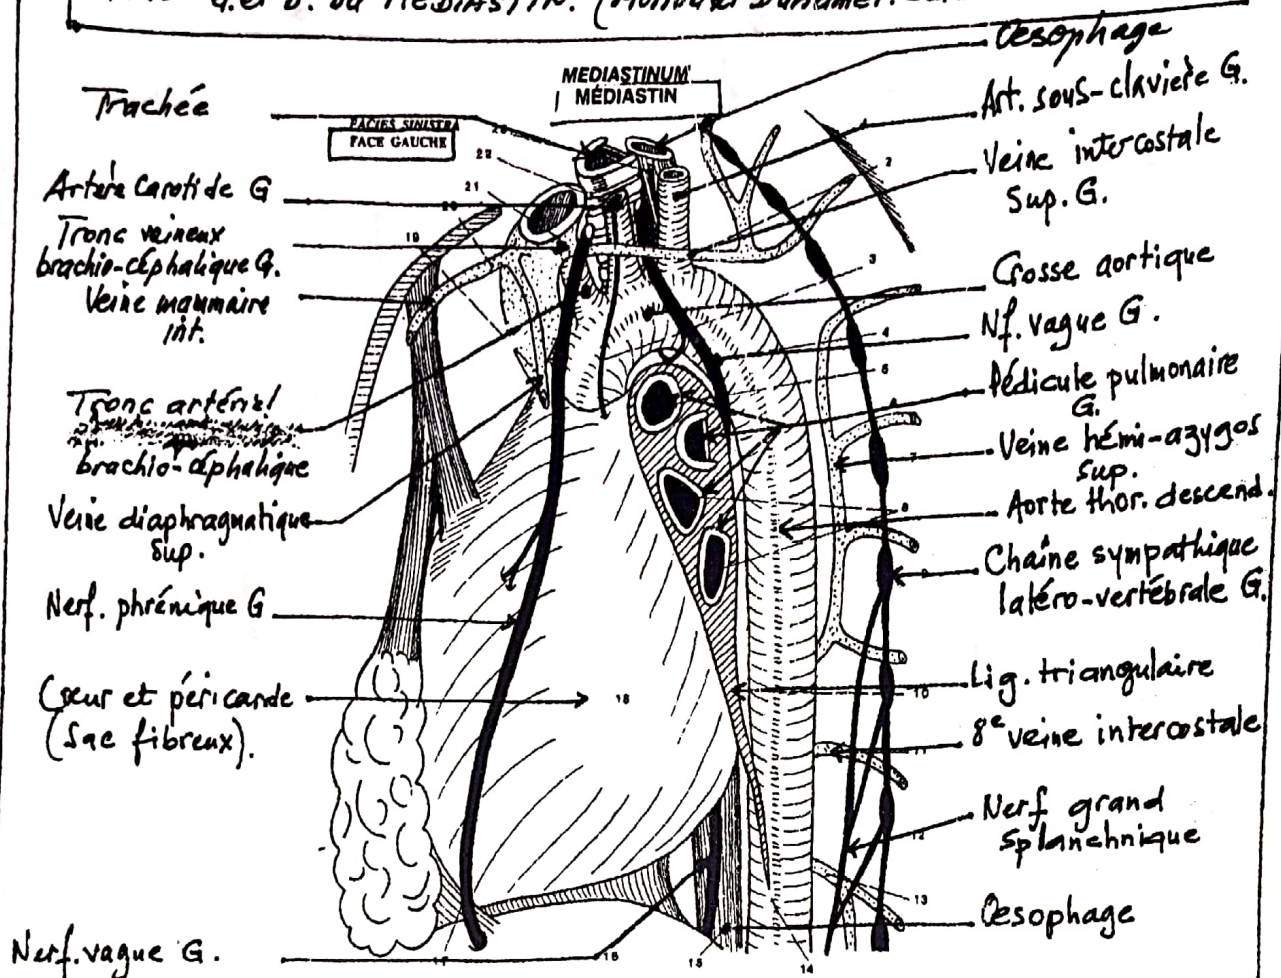 G. et D. du MEDIASTIN.
Œsophage
MEDIASTINUM
MÉDIASTIN
FACIES SINISTRA
FACE GAUCHE
Trachée
Artère Carotide G
Tronc veineux
brachio-céphalique G.
Veine mammaire
int.
Tronc artériel
brachio-céphalique
Veine diaphragmatique
sup.
Nerf. phrénique G
Cœur et péricarde
(Sac fibreux).
Nerf. vague G.
Art. sous-clavière G.
Veine intercostale
Sup. G.
Crosse aortique
Nf. vague G.
Pédicule pulmonaire
G.
Veine hémi-azygos
sup.
Aorte thor. descend.
Chaîne sympathique
latéro-vertébrale G.
Lig. triangulaire
8e veine intercostale
Nerf grand
splanchnique
Œsophage
2
3
4
7
10
11
12
13
14
15
16
17
18
19
20
21
22